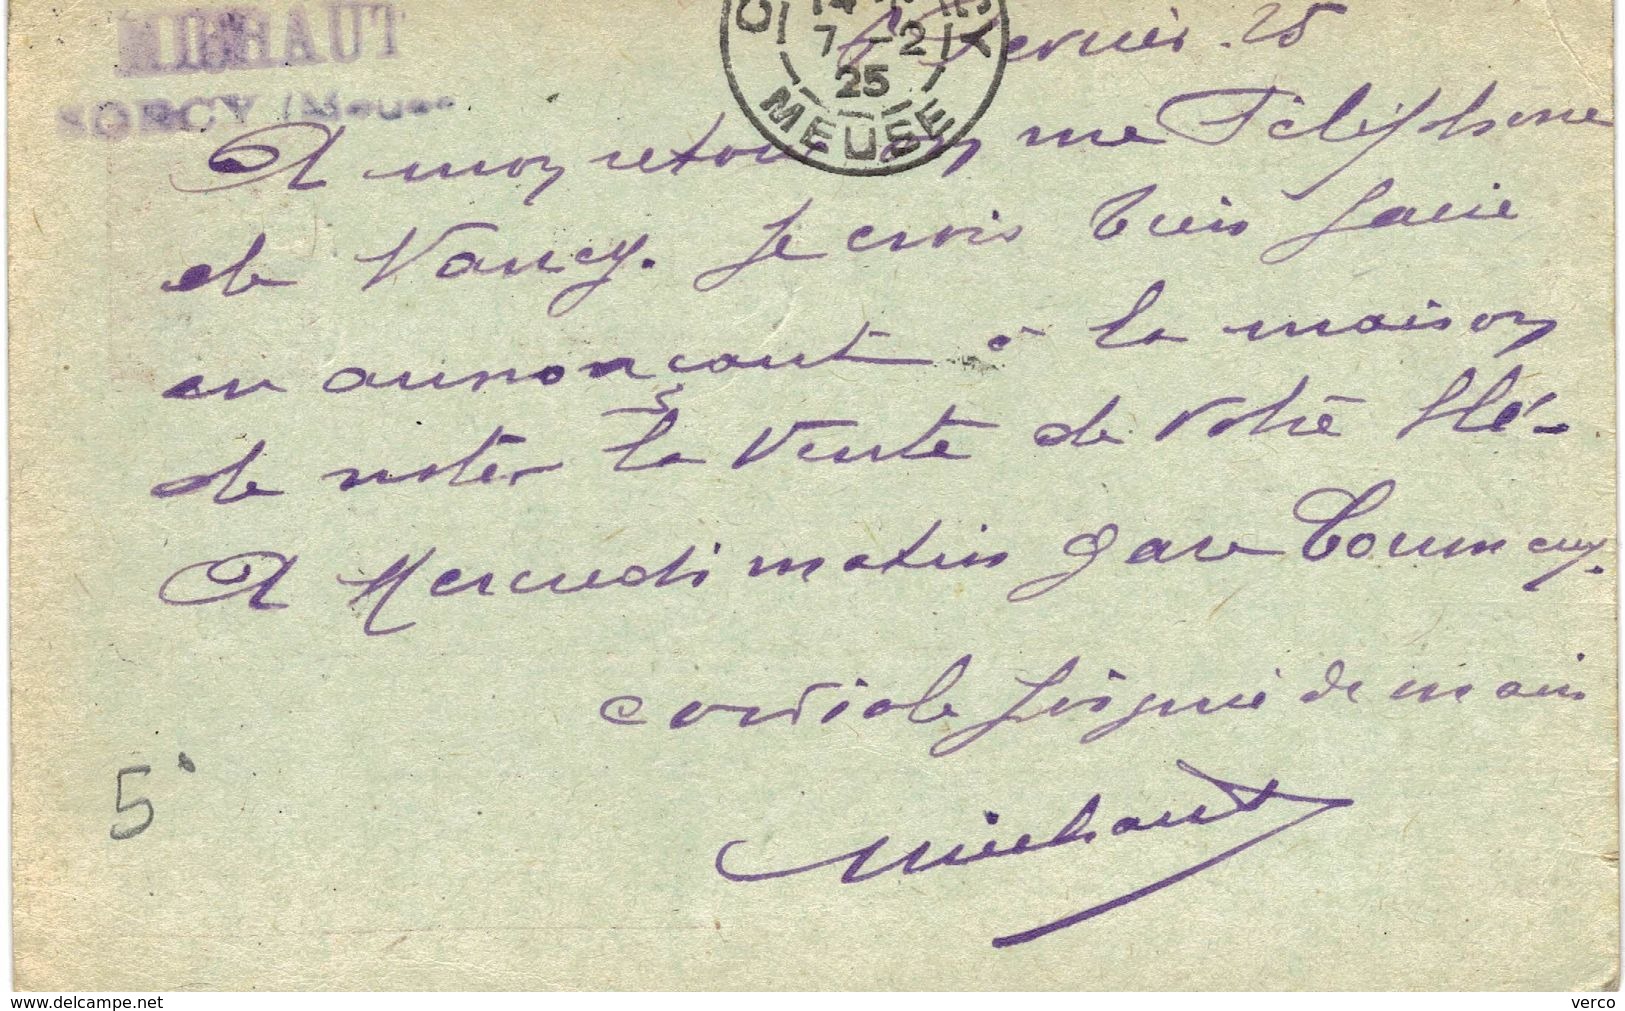 MICHAUT
SORCY (Meuse
14
7 - 2
25
MEUSE
Février. 25
A mon retour on me Téléphone
de Nancy. Je crois bien faire
en annonçant à la maison
de noter la Vente de votre blé-
A Mercredi matin gare Commercy.
cordiale poignée de main
Michaut
5
www.delcampe.net
verco